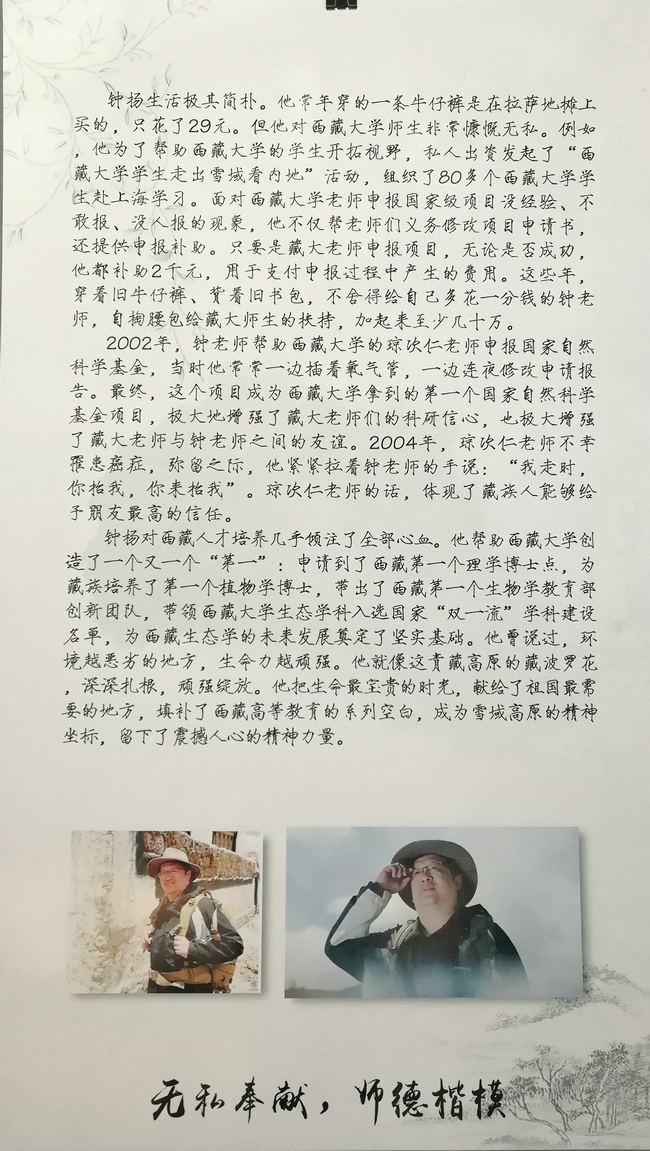 钟扬生活极其简朴。他常年穿的一条牛仔裤是在拉萨地摊上
买的，只花了29元。但他对西藏大学师生非常慷慨无私。例如
，他为了帮助西藏大学的学生开拓视野，私人出资发起了“西
藏大学学生走出雪域看内地”活动，组织了80多个西藏大学学
生赴上海学习。面对西藏大学老师申报国家级项目没经验、不
敢报、没人报的现象，他不仅帮老师们义务修改项目申请书，
还提供申报补助。只要是藏大老师申报项目，无论是否成功，
他都补助2千元，用于支付申报过程中产生的费用。这些年，
穿着旧牛仔裤、背着旧书包，不舍得给自己多花一分钱的钟老
师，自掏腰包给藏大师生的扶持，加起来至少几十万。
2002年，钟老师帮助西藏大学的琼次仁老师申报国家自然
科学基金，当时他常常一边插着氧气管，一边连夜修改申请报
告。最终，这个项目成为西藏大学拿到的第一个国家自然科学
基金项目，极大地增强了藏大老师们的科研信心，也极大增强
了藏大老师与钟老师之间的友谊。2004年，琼次仁老师不幸
罹患癌症，弥留之际，他紧紧拉着钟老师的手说：“我走时，
你抬我，你来抬我”。琼次仁老师的话，体现了藏族人能够给
予朋友最高的信任。
钟扬对西藏人才培养几乎倾注了全部心血。他帮助西藏大学创
造了一个又一个“第一”：申请到了西藏第一个理学博士点，为
藏族培养了第一个植物学博士，带出了西藏第一个生物学教育部
创新团队，带领西藏大学生态学科入选国家“双一流”学科建设
名单，为西藏生态学的未来发展奠定了坚实基础。他曾说过，环
境越恶劣的地方，生命力越顽强。他就像这青藏高原的藏波罗花
，深深扎根，顽强绽放。他把生命最宝贵的时光，献给了祖国最需
要的地方，填补了西藏高等教育的系列空白，成为雪域高原的精神
坐标，留下了震撼人心的精神力量。
无私奉献，师德楷模